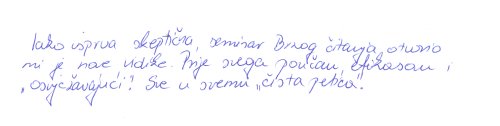 Iako isprva skeptična, seminar Brzog čitanja otvorio
mi je nove vidike. Prije svega poučan, efikasan i
„osvježavajući“. Sve u svemu „čista petica“.